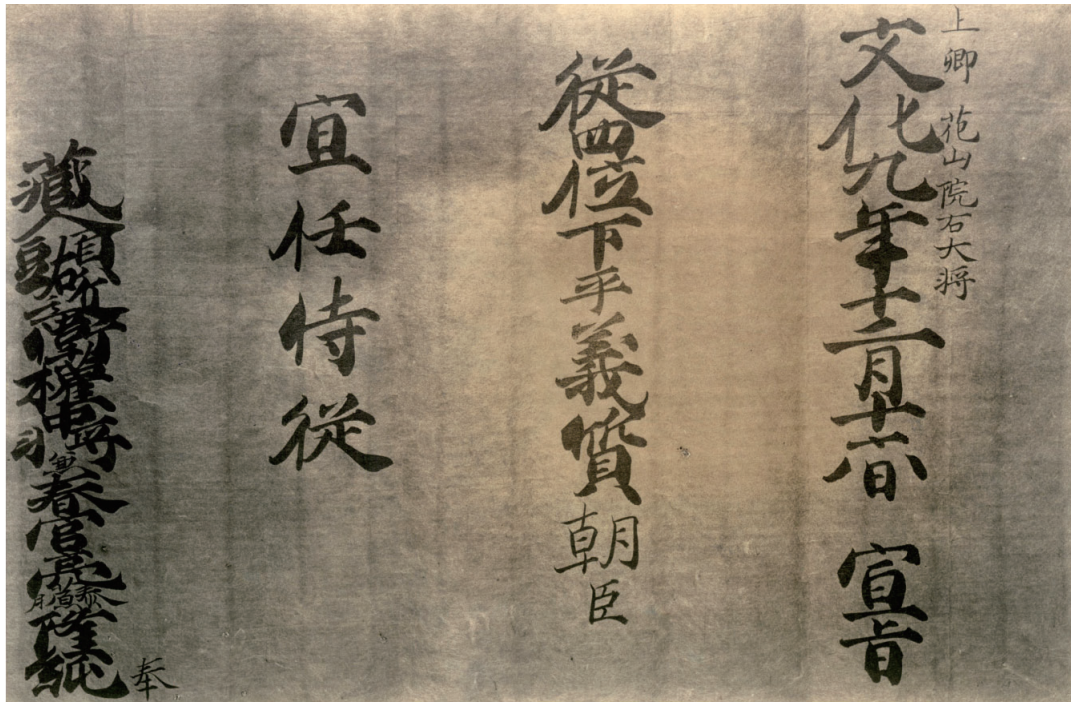 上卿 花山院右大将
文化九年十二月十六日 宣旨
從四位下平義質朝臣
宜任侍從
藏人頭右近衛權中將兼春宮亮藤原隆純 奉